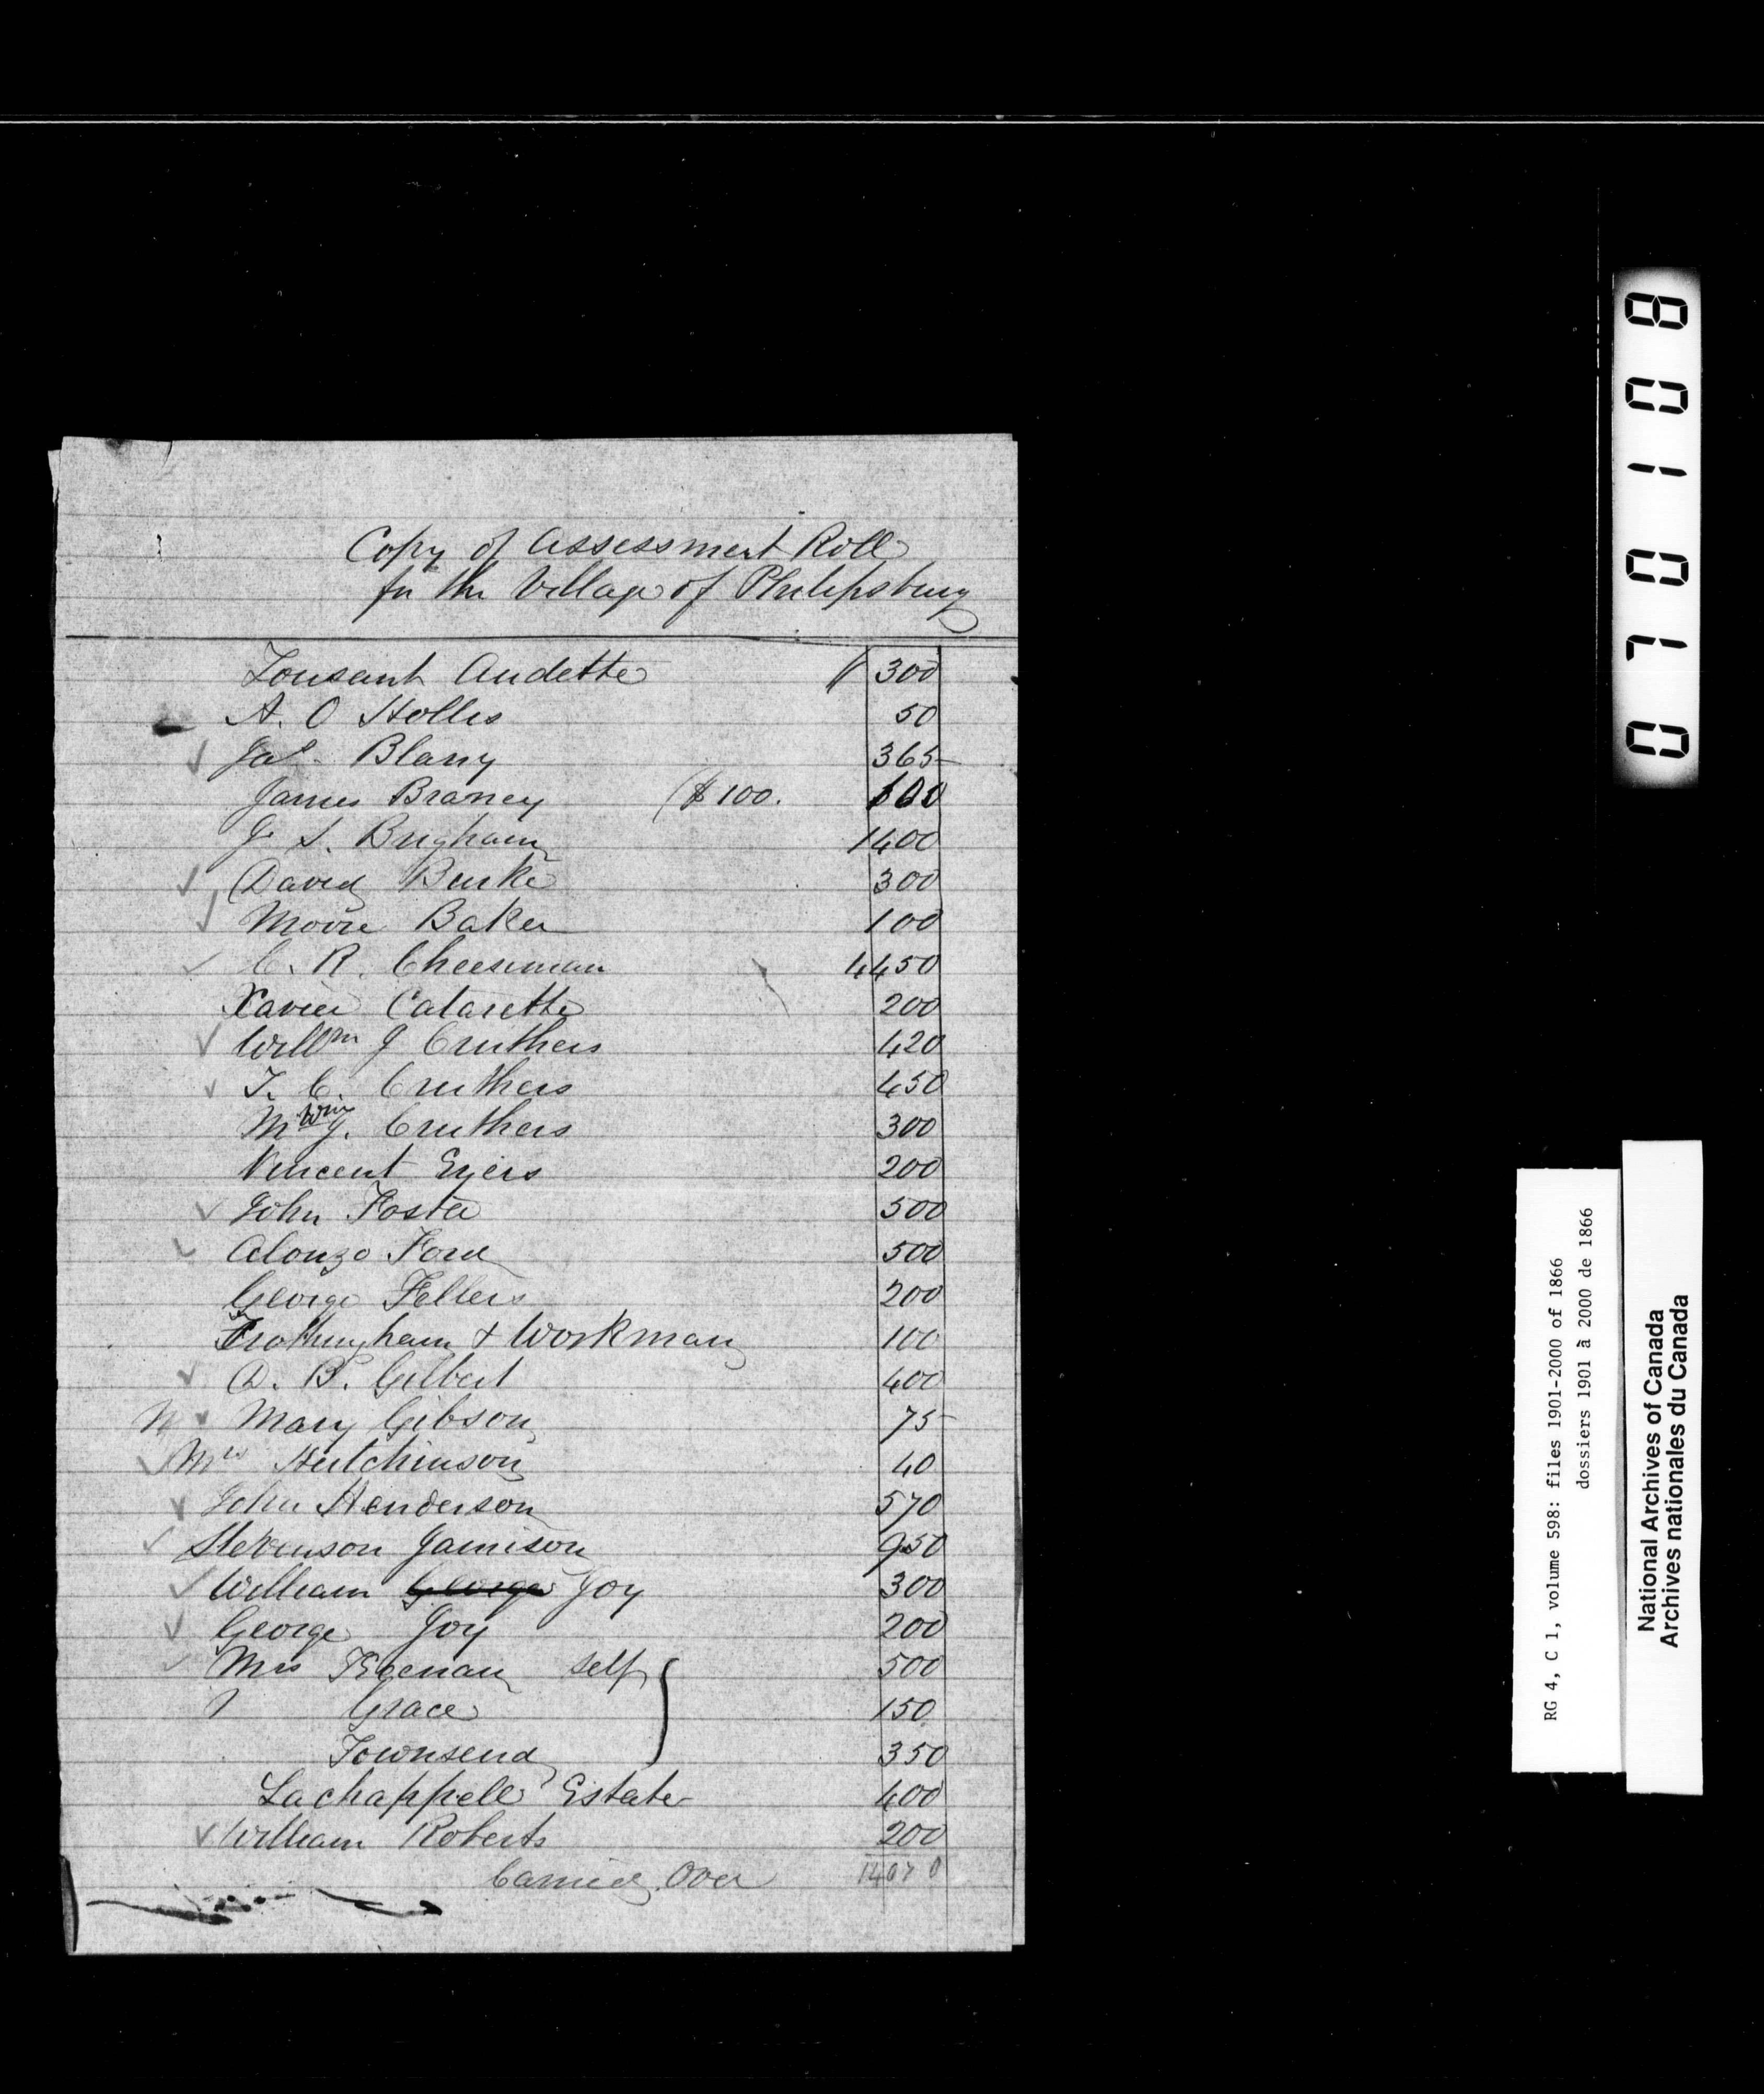 Copy of Assessment Roll
for the Village of Philipsburg
Tousant Audette $ 300
A. O Hollis 50
Jas. Blany 365
James Braney ($ 100. 100
J. S. Brigham 1400
David Burke 300
Moore Baker 100
C. R. Cheeseman 4450
Xavier Catarette 200
Willm J Cruthers 420
T. C. Cruthers 450
Mrs Wm J. Cruthers 300
Vincent Eyers 200
John Foster 500
Alonzo Ford 500
George Fellers 200
Frothingham & Workman 100
D. B. Gilbert 400
Mary Gibson 75
Mrs Hutchinson 40
John Henderson 570
Stevenson Jamison 950
William George Joy 300
George Joy 200
Mrs Keenan Self 500
Grace 150
Townsend 350
Lachappell Estate 400
William Roberts 200
Carried Over 14070
070108
RG 4, C 1, volume 598: files 1901-2000 of 1866
dossiers 1901 à 2000 de 1866
National Archives of Canada
Archives nationales du Canada